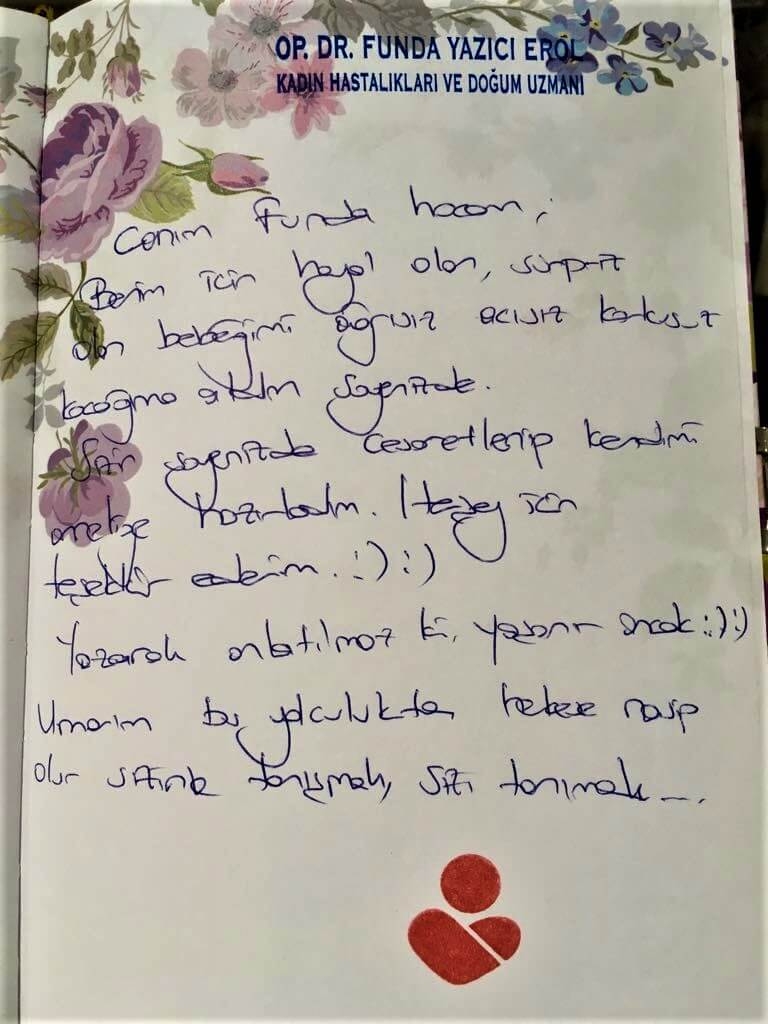 OP. DR. FUNDA YAZICI EROL
KADIN HASTALIKLARI VE DOĞUM UZMANI
Canım Funda hocam;
Benim için hayal olan, sürpriz
olan bebeğimi ağrısız acısız korkusuz
kucağıma aldım sayenizde.
Sizin sayenizde cesaretlenip kendimi
anneliğe hazırladım. Herşey için
teşekkür ederim. :) :)
Yazarak anlatılmaz ki, yaşanır ancak :) :)
Umarım bu yolculukta herkese nasip
olur sizinle tanışmak, sizi tanımak....